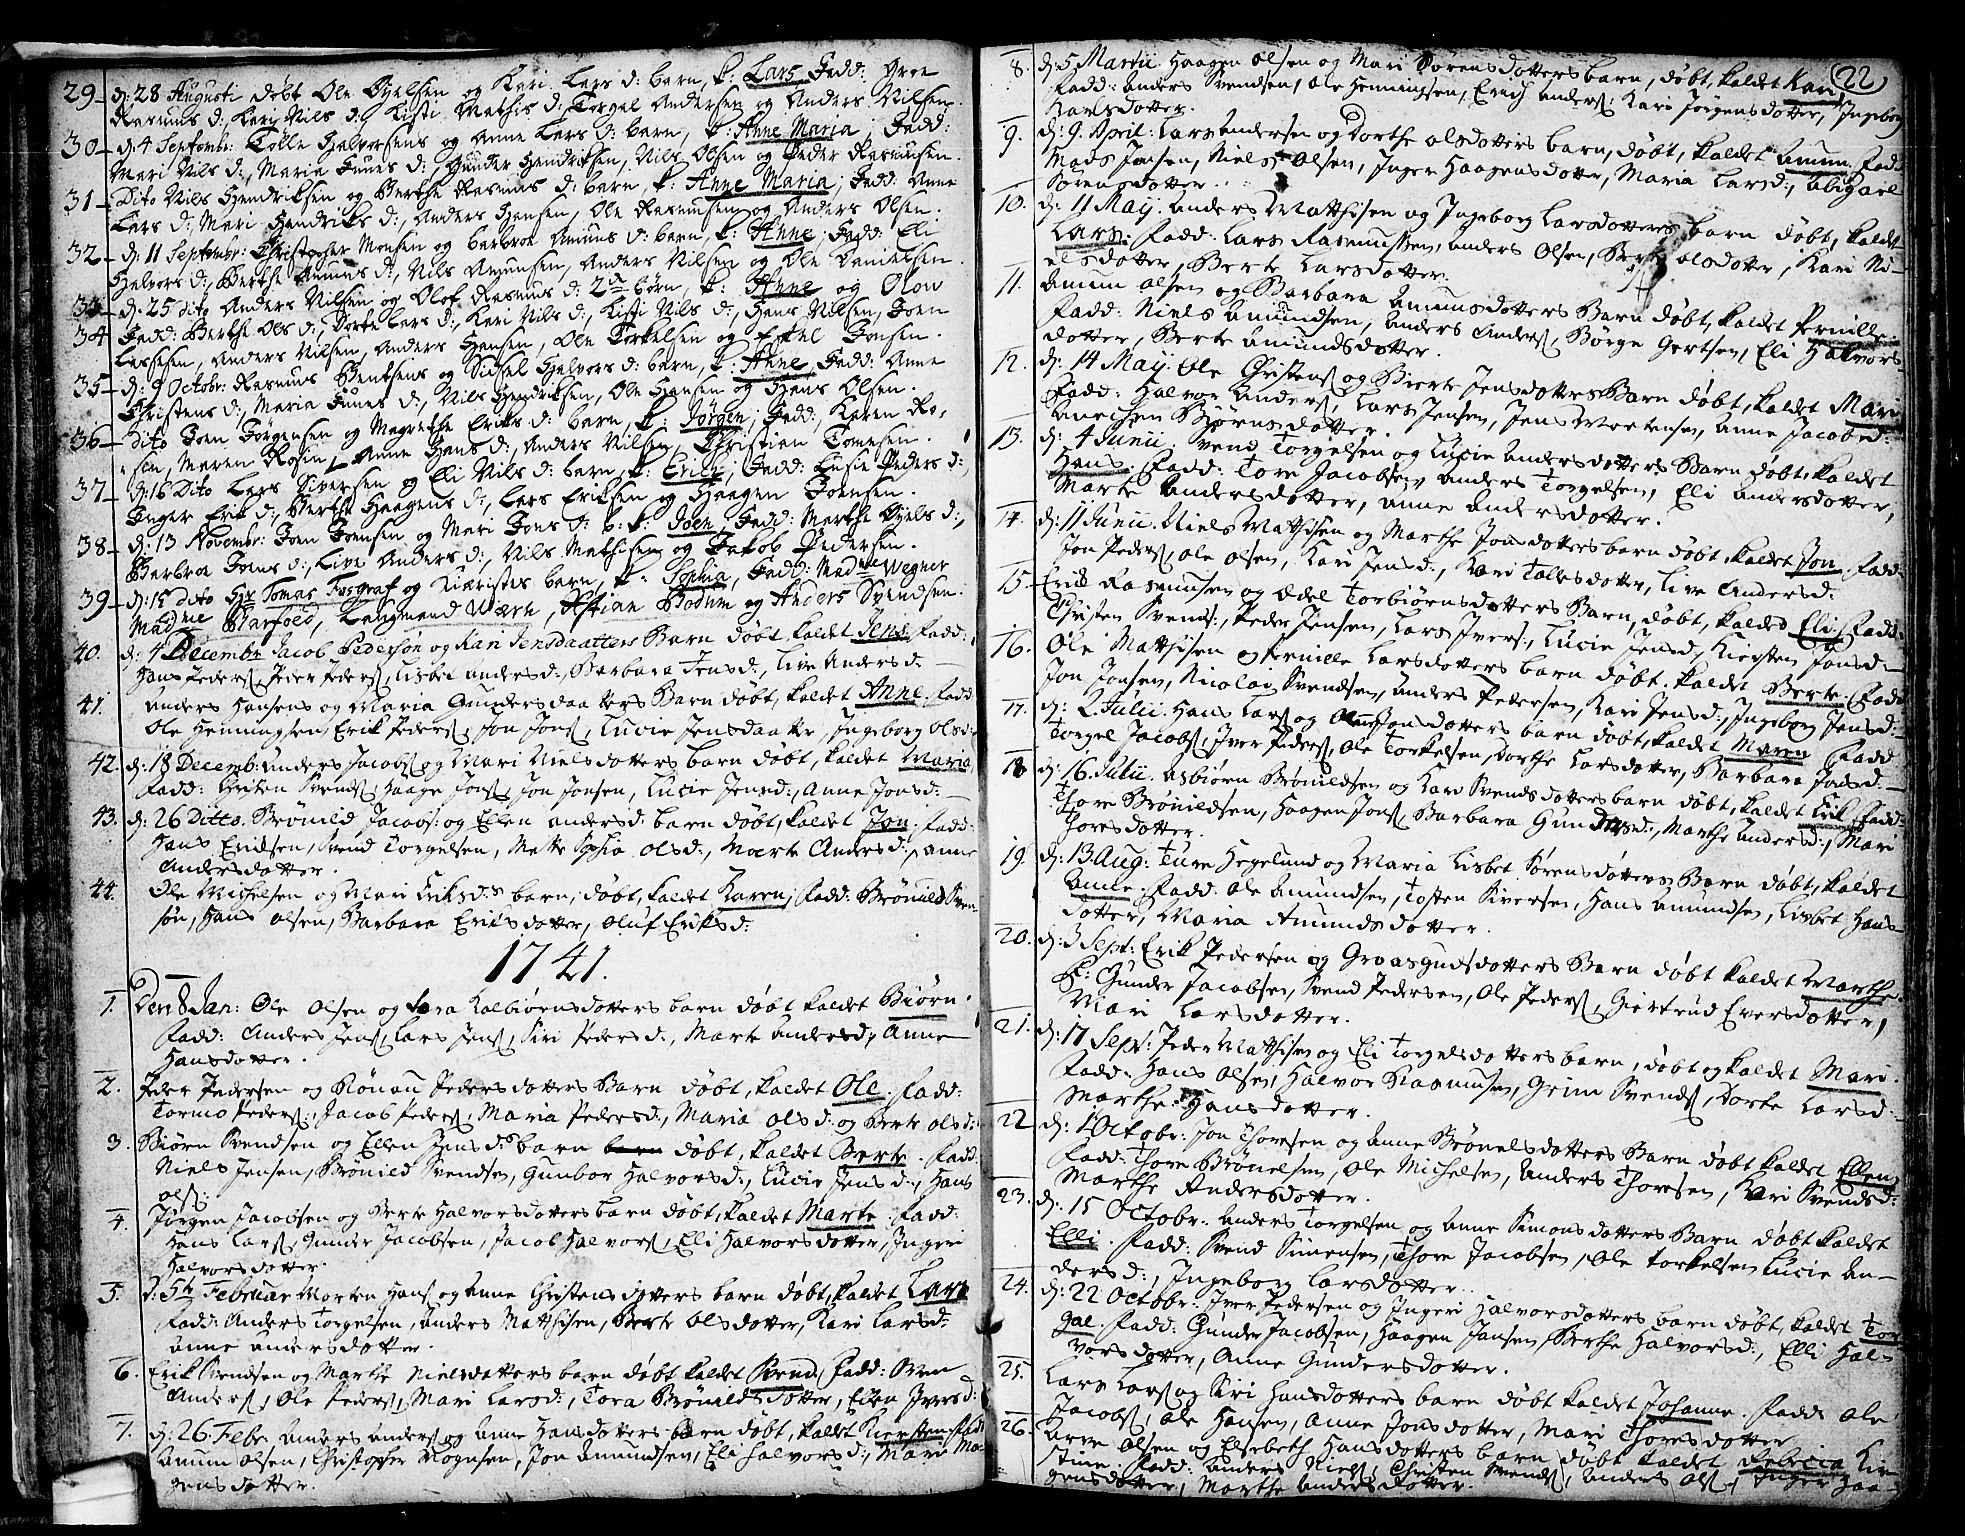 29- d: 28 Augusti døbt Ole Hielsen og Kari Lars d: barn, k: Lars, Fadd:
Rasmus d: Kari Nils d: Kisti Mathis d: Torgel Andersen og Anders Nilsen.
30- d: 4 Septembr: Tølle Halvorsens og Anne Lars d: barn, k: Anne Maria; Fadd:
Mari Nils d:, Maria Funes d:, Gunder Hendriksen, Nils Olsen og Peder Rasmusen.
31- Dito Nils Hendriksen og Berthe Rasmus d: barn, k: Anne Maria; Fadd: Anne
Lars d; Mari Hendriks d:, Anders Hansen, Ole Rasmusen og Anders Olsen.
32- d: 11 Septembr: Christopher Monsen og Barbroe Amuns d: barn, k: Anne; Fadd: Eli
Halvors d:, Berthe Amuns d:, Nils Amunsen, Anders Nilsen og Ole Danielsen.
33- d: 25 dito Anders Nilsen og Olof Rasmus d: 2de børn, k: Anne og Olow
34 Fadd: Berthe Ols d:, Dorte Lars d:, Kari Nils d:, Kisti Nils d:, Hans Nilsen, Joen
Lassesen, Anders Nilsen, Anders Hansen, Ole Torkelsen og Eskel Jonsen.
35- d: 9 Octobr: Rasmus Bentsens og Sidsel Halvors d: barn, k: Anne, Fadd: Anne
Christens d:, Maria Funes d:, Nils Hendriksen, Ole Hansen og Hans Olsen.
36- Dito Joen Jørgensen og Magrethe Eriks d: barn, k: Jørgen; Fadd: Karen Ro,
sen, Maren Rosin, Anne Hans d:, Anders Nilsen, Christian Tomesen.
37- d: 16 Dito Lars Siversen og Eli Nils d: barn, k: Erich; Fadd: Lusie Peders d:,
Inger Erik d:, Berthe Haagens d:, Lars Eriksen og Haagen Joensen.
38- d: 13 Novembr: Joen Joensen og Mari Jons d: b: k: Joen, Fadd: Marthe Niels d:,
Barbroe Joens d:, Live Anders d:, Nils Mathisen og Jakob Pedersen.
39- d: 15 Dito Hr Tomas Fosgraf og Kiæristes barn, k: Sophia, Fadd: Madme Wegner
Madme Barfoed, Langmand Wærn, Kristian Bodum og Anders Svendsen.
40. d: 4 Decembr Jacob Pedersøn og Kari Jensdaatters Barn døbt, kaldet Jens, Fadd:
Hans Peders, Peder Peders, Lisbet Anders d:, Barbara Jens d:, Live Anders d: —
41. Anders Hansens og Maria Gundersdaatters Barn døbt, kaldet Anne. Fadd
Ole Henningsen, Erik Peders, Jon Jons, Lucie Jensdaatter, Ingeborg Olsd:
42. d: 18 Decemb: Anders Jacobs og Mari Nielsdotters barn døbt, kaldet Maria,
Fadd: Christen Svends, Haage Jons, Jon Jonsen, Lucie Jensd:, Anne Jonsd: —
43. d: 26 Ditto. Brønild Jacobs: og Ellen Anders d: barn døbt, kaldet Jon. Fadd:
Hans Eridsen, Svend Torgelsen, Mette Sophia Olsd:, Marte Anders d:, Anne
Andersdotter.
44. Ole Michelsen og Mari Eriksd:s barn, døbt, kaldet Karen; Fadd: Brønild Sven-
søn, Hans Olsen, Barbara Eriksdotter, Oluf Eriks d:
1741.
1. Den 8 Jan: Ole Olsen og Sara Kalbiørnsdotters barn døbt kaldet Biørn.
Fadd: Anders Jens, Lars Jens, Siri Peders d:, Marte Andersd:, Anne
Hansdotter.
2. Peder Pedersen og Rønau Pedersdotters Barn døbt, kaldet Ole. Fadd:
Tormo Peders:, Jacob Peders, Maria Pedersd:, Maria Ols d: og Berte Ols d:
3. Biørn Svendsen og Ellen Jens d:s barn døbt, kaldet Berte. Fadd:
Niels Jensen, Brønild Svendsen, Gunbor Halvorsd:, Lucie Jens d:, Hans
Ols:
4. Jørgen Jacobsen og Berte Halvorsdotters barn døbt, kaldet Marte. Fadd:
Hans Lars, Gunder Jacobsen, Jacob Halvors, Eli Halvorsdotter, Ingeri
Halvorsdotter.
5. d: 5te Februar Morten Hans og Anne Christensdotters barn døbt, kaldet Lars
Fadd: Anders Torgelsen, Anders Matthisen, Berte Olsdotter, Kari Larsd:
Anne Andersdotter.
6. Erik Svendsen og Marthe Nielsdotters barn døbt kaldet Svend, Fadd: Sven
Anders, Ole Peders, Mari Larsd:, Tora Brønildsdotter, Ellen Ivers d:
7. d: 26 Febr: Anders Anders og Anne Hansdotters barn døbt, kaldet Kiersten, Fadd
Amum Olsen, Christopher Mognsen, Jon Amundsen, Eli Halvors d:, Mari Mo-
gensdotter.
(22)
8. d: 5 Martii Haagen Olsen og Mari Sørensdotters barn, døbt, kaldet Kari,
Fadd: Anders Svendsen, Ole Henningsen, Erich Anders: Kari Jørgensdotter, Ingeborg
Karlsdotter.
9. d: 9 April: Lars Andersen og Dorthe Olsdotters barn, døbt, kaldet Amum. Fadd
Mads Jonsen, Niels Olsen, Inger Haagensdotter, Maria Larsd:, Abigael
Sørensdotter.
10. d: 11 Maij. Anders Matthisen og Ingeborg Larsdotters barn døbt, kaldet
Lars. Fadd: Lars Rasmussen, Anders Olsen, Berte Olsdotter, Kari Ni-
elsdotter, Berte Larsdotter.
11. Amum Olsen og Barbara Amunsdotters Barn døbt, kaldet Pernille.
Fadd: Niels Amundsen, Anders Anders, Børge Gertsen, Eli Halvors-
dotter, Berte Amundsdotter.
12. d: 14 Maij. Ole Christens og Bierte Jensdotters Barn døbt, kaldet Mari
Fadd: Halvor Anders, Lars Jensen, Jens Mortensen, Anne Jacobsd:
Anechen Biørnsdotter.
13. d: 4 Junii. Svend Torgelsen og Lucie Andersdotters Barn døbt, kaldet
Hans. Fadd: Tore Jacobsen, Anders Torgelsen, Eli Andersdotter,
Marte Andersdotter, Anne Andersdotter.
14. d: 11 Junii. Niels Matthisen og Marthe Jonsdotters barn døbt, kaldet Jon. Fadd:
Jon Peders, Ole Olsen, Kari Jens d:, Kari Tollesdotter, Live Anders d:
15. Erik Rasmussen og Edel Torbiørnsdotters Barn, døbt, kalded Eli, Fadd:
Christen Svends:, Peder Jensen, Lars Ivers:, Lucie Jensd:, Kiersten Jonsd: —
16. Ole Matthisen og Pernille Larsdotters barn døbt. kaldet Berte. Fadd
Jon Jonsen, Nicolay Svendsen, Anders Pedersen, Kari Jensd:, Ingeborg Jensd: —
17. d: 2 Julii. Hans Lars og Oluf Jonsdotters barn døbt, kaldet Maren Fadd
Torgel Jacobs, Iver Peders, Ole Torkelsen, Dorthe Larsdotter, Barbara Jonsd. —
18 d: 16 Julii. Asbiørn Brønildsen og Kari Svendsdotters barn døbt, kaldet Erik, Fadd:
Thore Brønildsen, Haagen Jons, Barbara Gundersd:, Marthe Andersd:, Mari
Thoresdotter.
19. d: 13 Aug: Ture Hegelund og Maria Lisbet Sørensdotters Barn døbt, kaldet
Anne. Fadd: Ole Amundsen, Tosten Siversen, Hans Amundsen, Lisbet Hans-
dotter, Maria Amundsdotter.
20. d: 3 Sept: Erik Pedersen og Groasgudsdotters Barn døbt kaldet Marthe.
F: Gunder Jacobsen, Svend Pedersen, Ole Peders, Giertrud Eversdotter,
Mari Larsdotter.
21. d: 17 Sept: Peder Matthisen og Eli Torgelsdotters barn, døbt og kaldet Mari.
Fadd: Hans Olsen, Halvor Rasmusen, Grim Svends, Dorte Larsd:
Marthe Hansdotter.
22 d: 1 Octobr: Jon Thoresen og Anne Brønelsdotters Barn døbt kaldet Ellen,
Fadd: Thore Brønelsen, Ole Michelsen, Anders Thoresen, Kari Svendsd:
Marthe Andersdotter.
23. d: 15 Octobr: Anders Torgelsen og Anne Simonsdotters Barn døbt kaldet
Elli. Fadd: Svend Simensen, Thore Jacobsen, Ole Torkelsen Lucie An-
ders d:, Ingeborg Larsdotter.
24. d: 22 Octobr: Iver Pedersen og Ingeri Halvorsdotters barn døbt, kaldet Tor
gal. Fadd: Gunder Jacobsen, Haagen Jansen, Berthe Halvorsd:, Elli Hal-
vorsdotter, Anne Gundersdotter.
25. Lars Lars og Siri Hansdotters barn døbt kaldet Johanne. Fadd: Ole
Jacobs, Ole Hansen, Anne Jonsdotter, Mari Thoresdotter.
26. Arve Olsen og Elsebeth Hansdotters barn døbt kaldet Rebecca Kir
stine. Fadd: Anders Niels, Christen Svends, Anders Ols, Inger Haa-
gensdotter, Marthe Andersdotter.